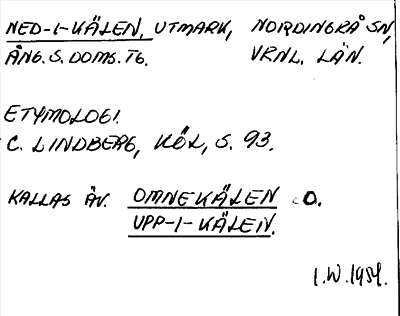 NED-I-KÄLEN, UTMARK, NORDINGRÅ SN,
ÅNG. S. DOMS. TG. VRNL. LÄN.
ETYMOLOGI.
C. LINDBERG, KÖL, S. 93.
KALLAS ÄV. OMNEKÄLEN O.
UPP-I-KÄLEN.
I.W. 1954.